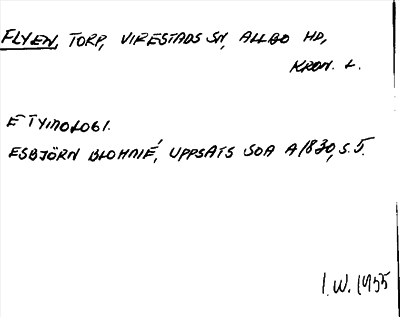 FLYEN, TORP, VIRESTADS SN, ALLBO HD,
KRON. L.
ETYMOLOGI.
ESBJÖRN BLOHMÉ, UPPSATS SOA A1830, S. 5.
I.W. 1955